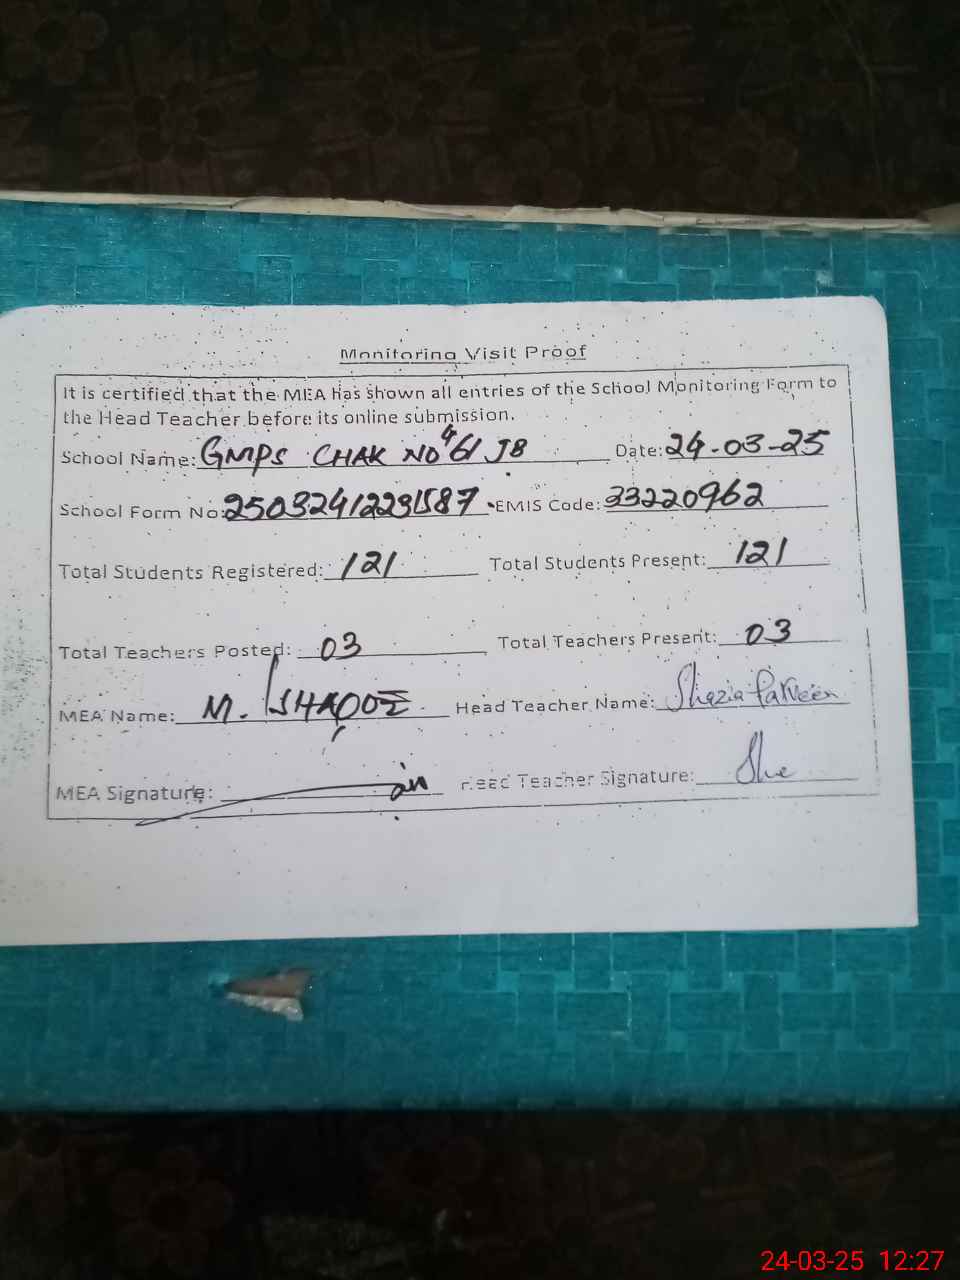 Monitoring Visit Proof
It is certified that the MEA has shown all entries of the School Monitoring Form to
the Head Teacher before its online submission.
School Name: GMPS CHAK NO 461 JB Date: 24-03-25
School Form No: EMIS Code: 33220962
Total Students Registered: 121 Total Students Present: 121
Total Teachers Posted: 03 Total Teachers Present: 03
MEA Name: M. Head Teacher Name: Shazia Parveen
MEA Signature: Head Teacher Signature: She
24-03-25 12:27